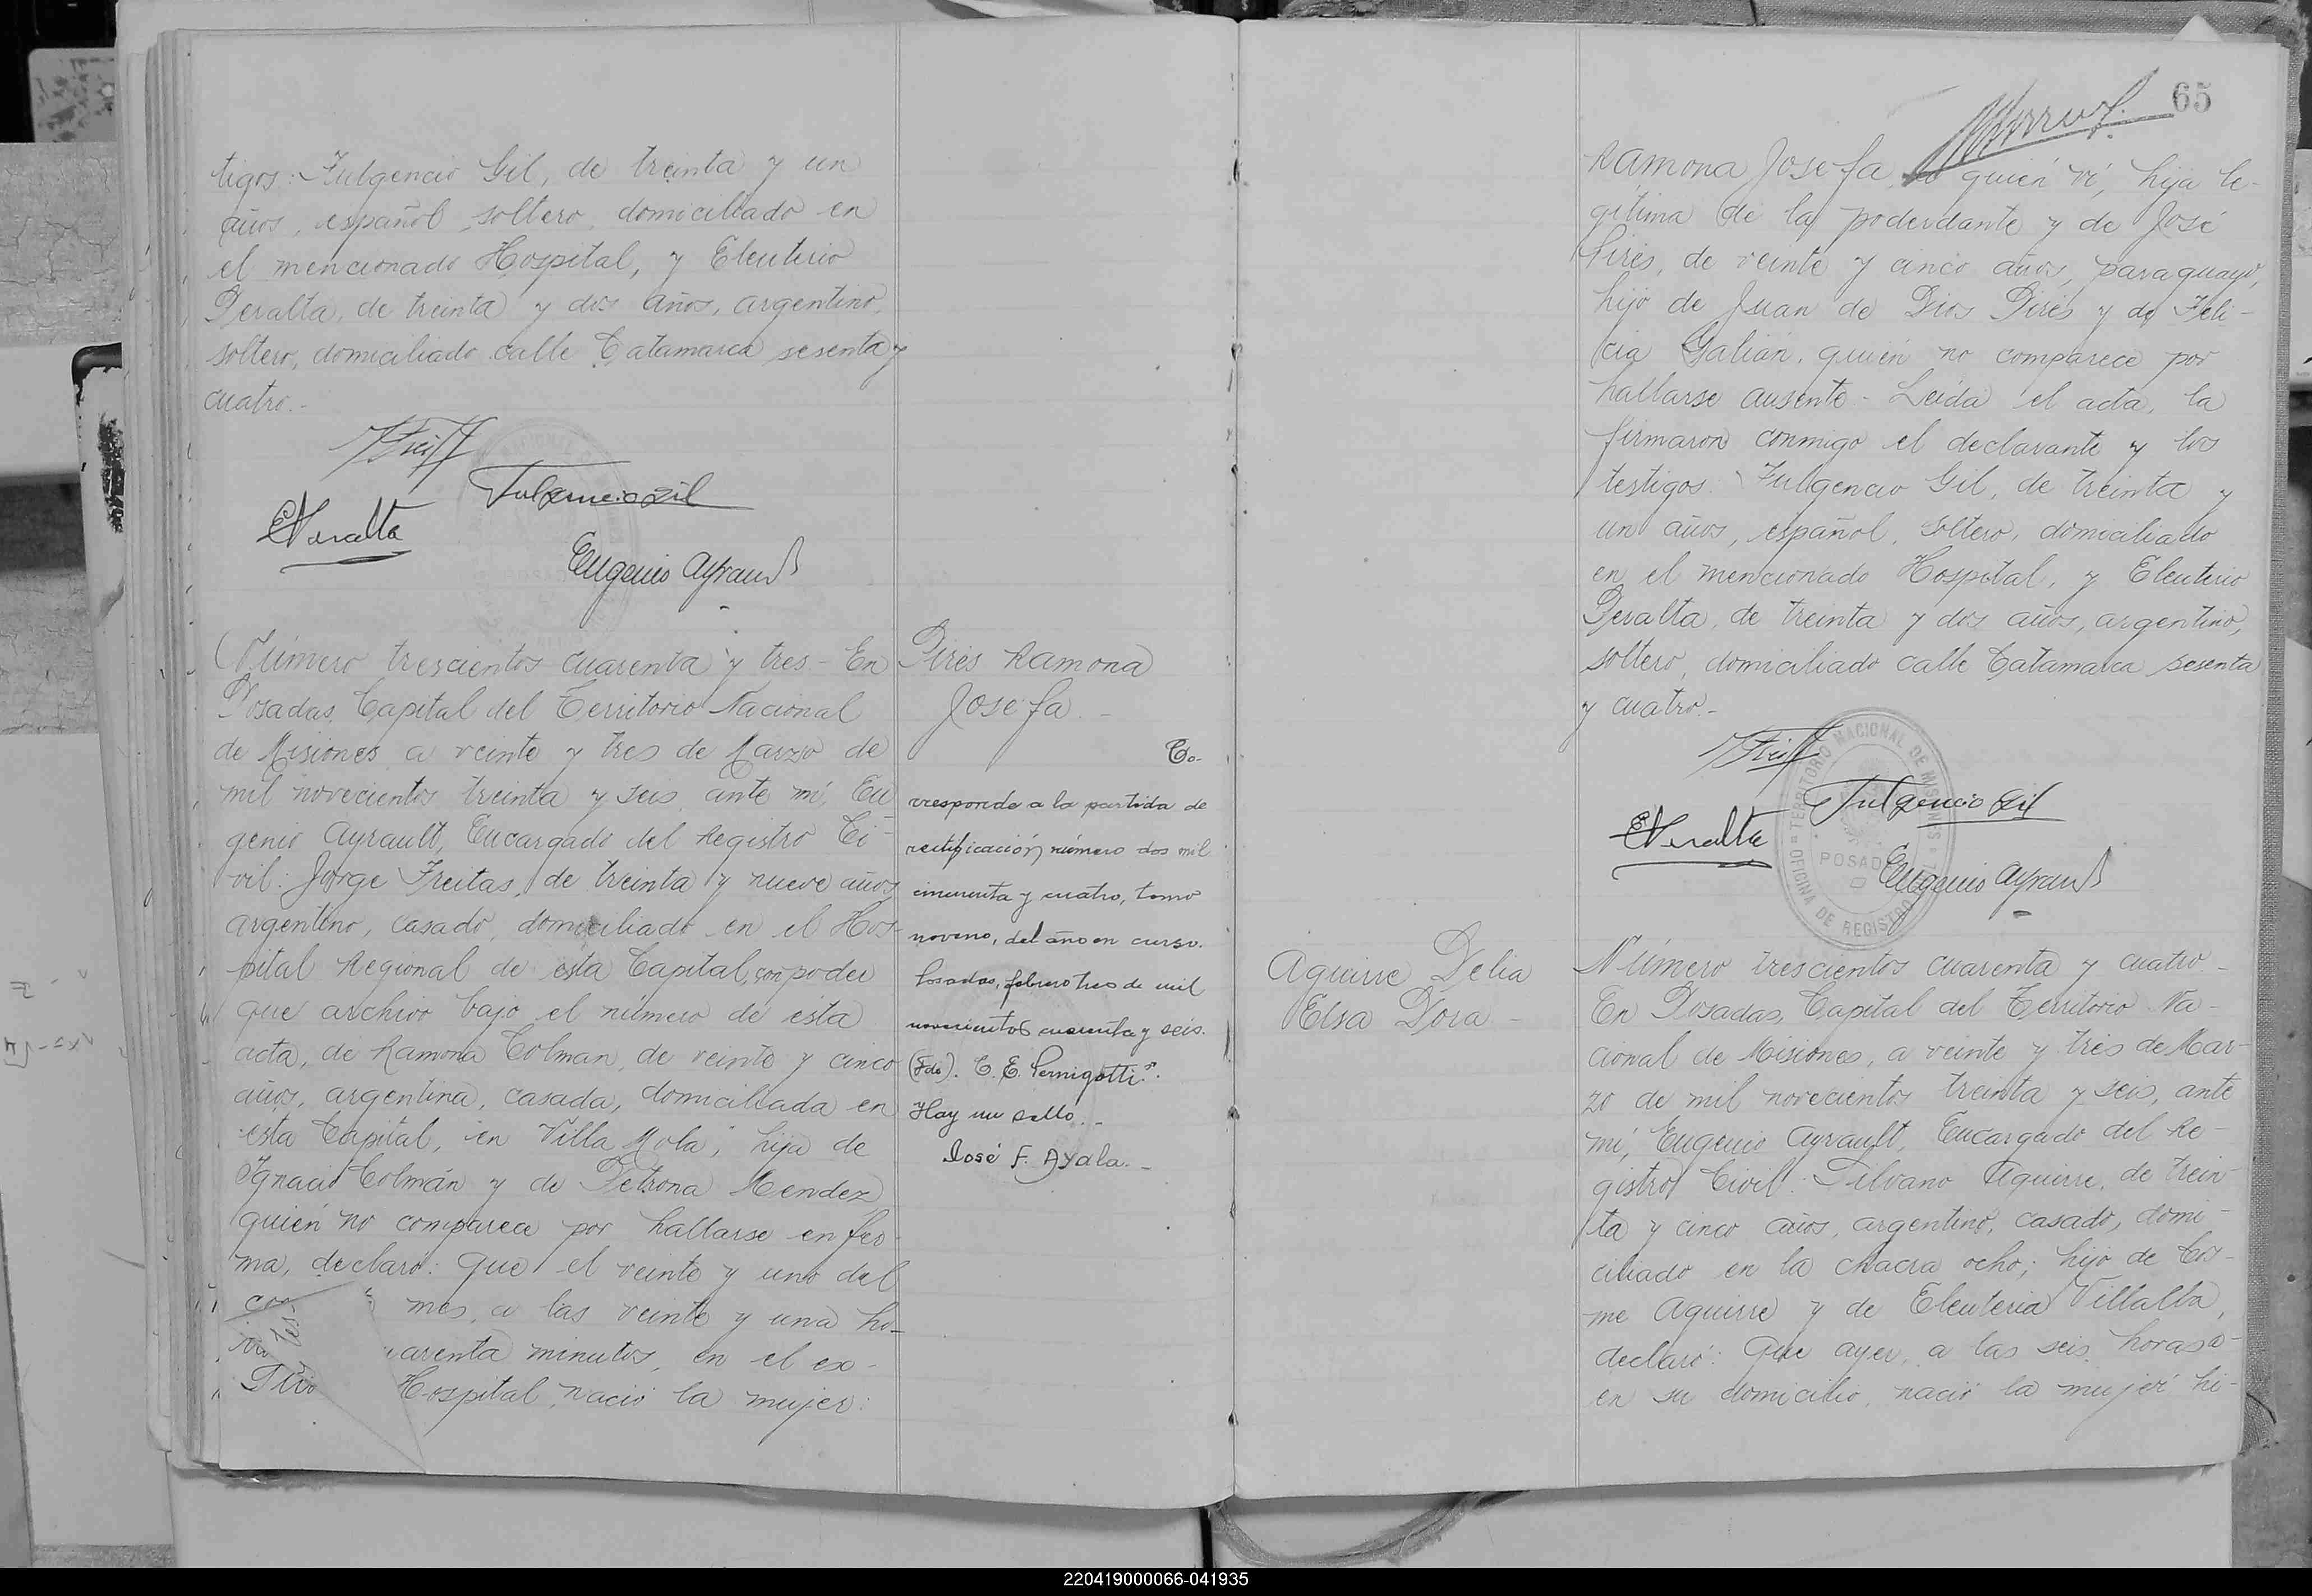 tigos: Fulgencio Gil, de treinta y un
años, español, soltero, domiciliado en
el mencionado Hospital, y Eleuterio
Peralta, de treinta y dos años, argentino,
soltero, domiciliado calle Catamarca sesenta y
cuatro.-
Fulgencio Gil
EPeralta
Eugenio Ayrault
Número trescientos cuarenta y tres - En
Posadas, Capital del Territorio Nacional
de Misiones, a veinte y tres de Marzo de
mil novecientos treinta y seis, ante mí, Eu
genio Ayrault, Encargado del Registro Ci-
vil: Jorge Freitas, de treinta y nueve años,
argentino, casado, domiciliado en el Hos-
pital Regional de esta Capital, con poder
que archivo bajo el número de ésta
acta, de Ramona Colman, de veinte y cinco
años, argentina, casada, domiciliada en
esta Capital, en Villa Mola, hija de
Ignacio Colmán y de Petrona Mendez
quién no comparece por hallarse enfer-
ma, declaró: Que el veinte y uno del
mes, a las veinte y una ho-
uarenta minutos, en el ex-
Hospital nació la mujer:
Pirés Ramona
Josefa -
Co-
rresponde a la partida de
rectificación número dos mil
cincuenta y cuatro, tomo
noveno, del año en curso.
Posadas, febrero tres de mil
novecientos cuarenta y seis.
(Fdo). C. E. Pernigotti.
Hay un sello.-
José F. Ayala.-
65
Ramona Josefa, a quién ví, hija le-
gítima de la poderdante y de José
Pirés, de veinte y cinco años, paraguayo,
hijo de Juan de Dios Pirés y de Feli-
cia Galián, quién no comparece por
hallarse ausente - Leída el acta, la
firmaron conmigo el declarante y los
testigos: Fulgencio Gil, de treinta y
un años, español, soltero, domiciliado
en el mencionado Hospital, y Eleuterio
Peralta, de treinta y dos años, argentino,
soltero, domiciliado calle Catamarca sesenta
y cuatro.-
Fulgencio Gil
EPeralta
Eugenio Ayrault
TERRITORIO NACIONAL DE MISIONES
POSADAS
OFICINA DE REGISTRO
Aguirre Delia
Elsa Dora -
Número trescientos cuarenta y cuatro -
En Posadas, Capital del Territorio Na-
cional de Misiones, a veinte y tres de Mar-
zo de mil novecientos treinta y seis, ante
mí, Eugenio Ayrault, Encargado del Re-
gistro Civil: Silvano Aguirre, de trein-
ta y cinco años, argentino, casado, domi-
ciliado en la chacra ocho; hijo de Cos-
me Aguirre y de Eleuteria Villalba,
declaró: Que ayer, a las seis horas
en su domicilio, nació la mujer hi-
220419000066-041935